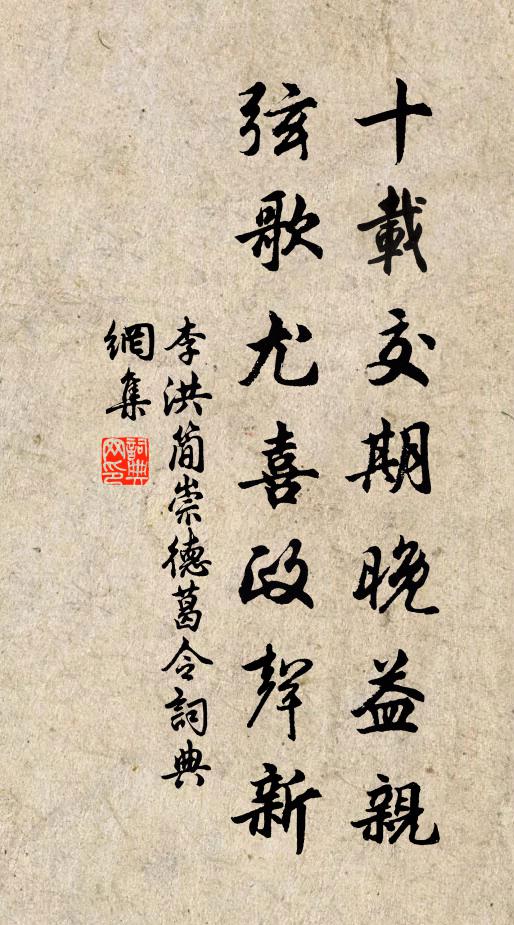 十載交期晚益親
弦歌尤喜政聲新
李洪簡崇德葛令詞典
網集
詞典
网印